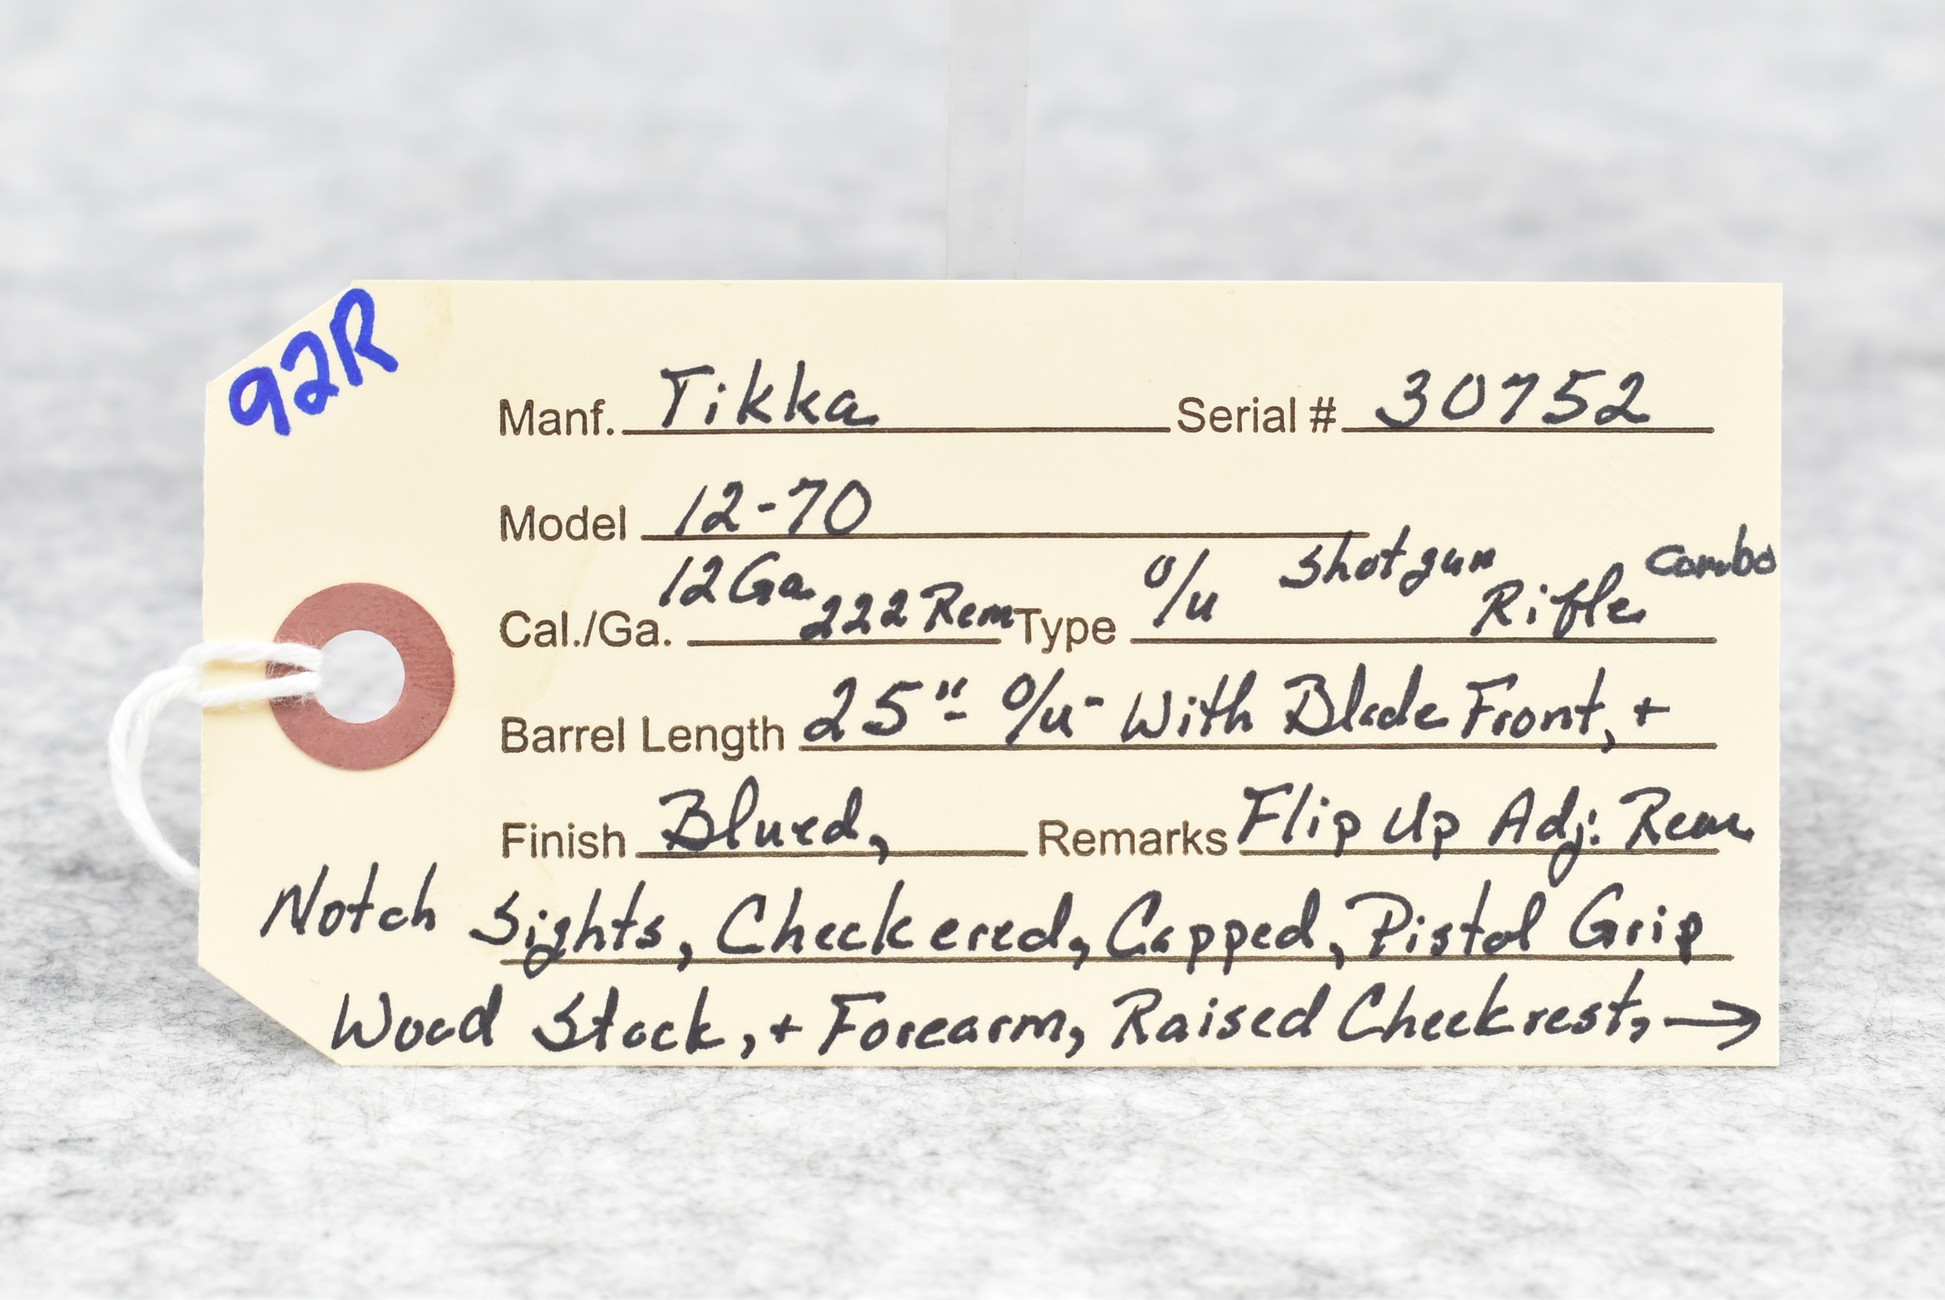 92R
Manf. Tikka Serial # 30752
Model 12-70
Cal./Ga. 12 Ga 222 Rem Type O/u Shotgun Rifle Combo
Barrel Length 25" - O/u - With Blade Front, +
Finish Blued, Remarks Flip Up Adj. Rear
Notch Sights, Checkered, Capped, Pistol Grip
Wood Stock, + Forearm, Raised Cheekrest, →